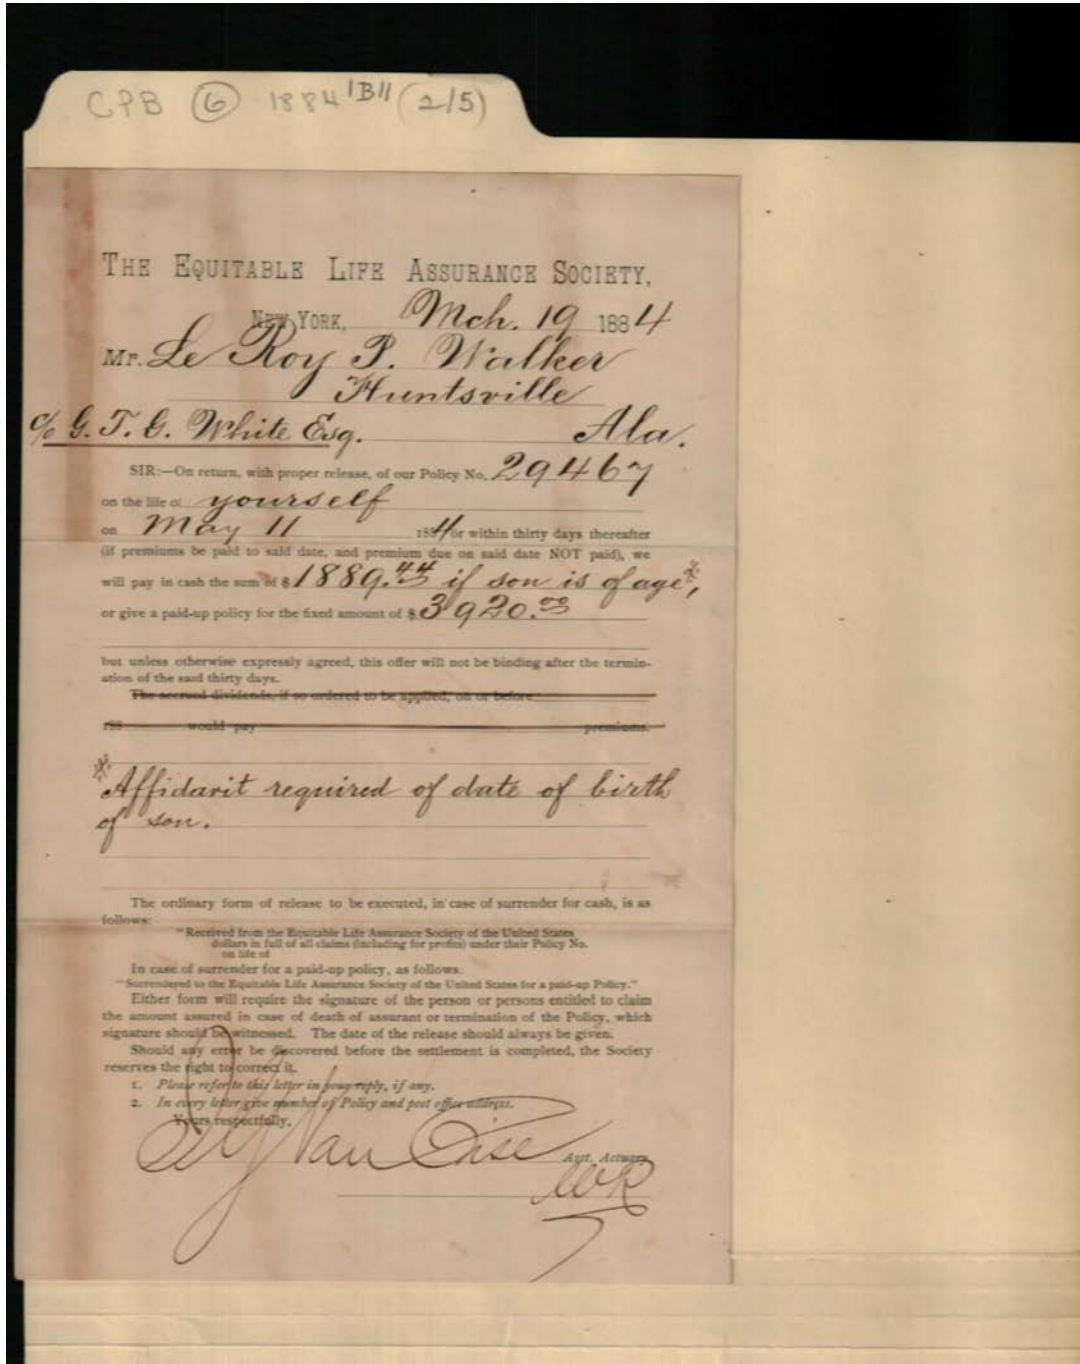 CPB 6 1884 "B" (2/5)
THE EQUITABLE LIFE ASSURANCE SOCIETY,
NEW YORK, Mch. 19 1884
Mr. Le Roy P. Walker
Huntsville
c/o G. T. G. White Esq. Ala.
SIR:—On return, with proper release, of our Policy No. 29467
on the life of yourself
on May 11 1884 or within thirty days thereafter
(if premiums be paid to said date, and premium due on said date NOT paid), we
will pay in cash the sum of $ 1889.44 if son is of age*,
or give a paid-up policy for the fixed amount of $ 3920.00
but unless otherwise expressly agreed, this offer will not be binding after the termin-
ation of the said thirty days.
The accrued dividends, if so ordered to be applied, on or before
188 would pay premiums.
* Affidavit required of date of birth
of son.
The ordinary form of release to be executed, in case of surrender for cash, is as
follows:
"Received from the Equitable Life Assurance Society of the United States
dollars in full of all claims (including for profits) under their Policy No.
on life of
In case of surrender for a paid-up policy, as follows.
"Surrendered to the Equitable Life Assurance Society of the United States for a paid-up Policy."
Either form will require the signature of the person or persons entitled to claim
the amount assured in case of death of assurant or termination of the Policy, which
signature should be witnessed. The date of the release should always be given.
Should any error be discovered before the settlement is completed, the Society
reserves the right to correct it.
1. Please refer to this letter in your reply, if any.
2. In every letter give number of Policy and post office address.
Yours respectfully,
Van Cise
Asst. Actuary